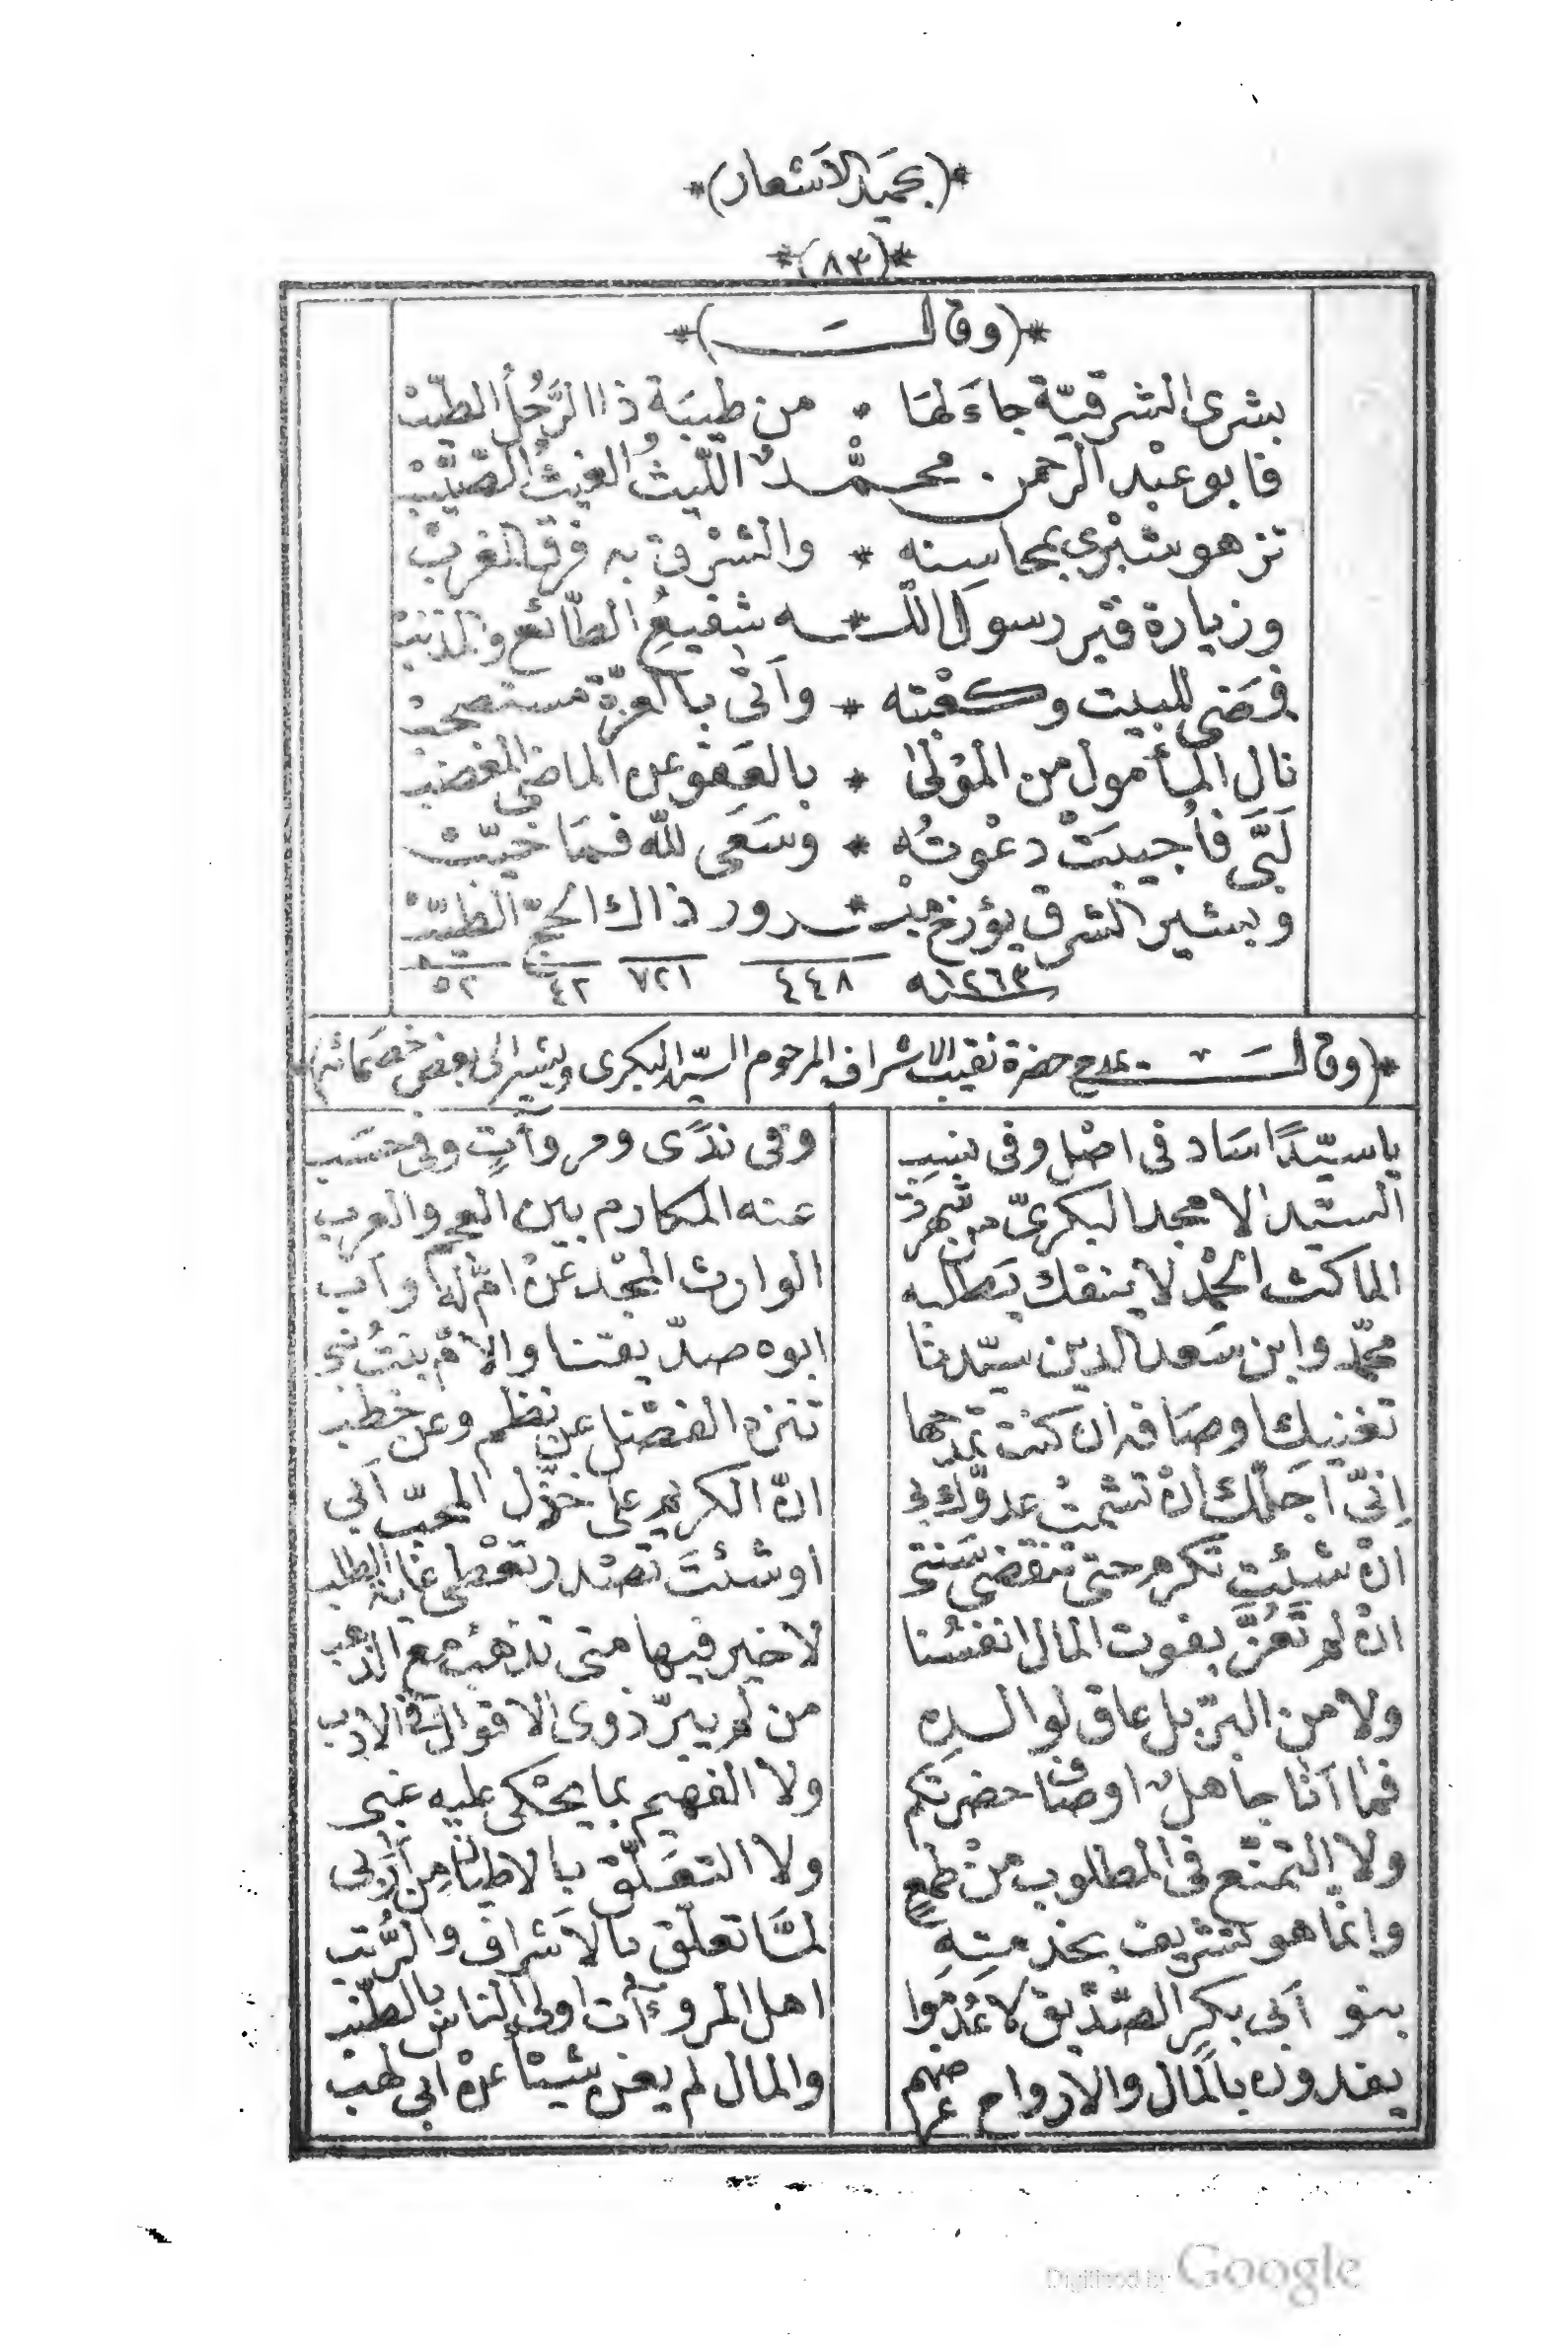 *(بحميد الاشعار)*
*(٨٣)*
*(وقال)*
بشرى الشرقيّة جاءَ لهَا * من طيبَة ذا الرَّجُل الطيّبْ
فابو عبْد الرحمن محمّدٌ اللّيثُ الغيثُ الصّيِّبْ
تزهو شبْرى بمحاسنه * والشرْق به فرقا لمغربْ
وزيارة قبر رسول اللّه شفيعُ الطّائع والمذنبْ
فرضى للبيت وكعْبته * وآتى بالعزّة مستصحبْ
نال المأمول من المؤلى * بالعَفو عن الماضى المغضبْ
لَبَّى فاُجيبَتْ دعْوتُه * وسَعَى للّه فمَا خيّبْ
وبشير الشرق يؤرخ مبرور ذاك الحجّ الطيّبْ
سنه ١٢٦٣ ٤٤٨ ٧٢١ ٤٢ ٥٢
*(وقال يمدح حضرة نقيب الاشراف المرحوم السيّد البكرى ويشير الى بعض خصمائه)*
ياسيّدًا ساد فى اصْل وفى نسبِ وفى ندًى ومروآتٍ وفى حسَبِ
السيّد الامجد البكرىّ من شهرتْ عنه المكارم بين العجم والعرب
الماكث الحمْد لا ينفك يَطلبه الوارث المجْد عنْ امّ له وابْ
محمّد وابن سَعد الدين سيّدنا ابوه صدّيقنا والامّ بنتُ نبى
تغنيك اوصَافه ان كنت تمْدحها تنزه الفضْل عن نظم وعن خطب
اِنّى اجلّك انْ تشمتْ عدوّك بى انّ الكريم على خذل المحبّ أبى
انْ شئت تكرم حتى تنقضى سَنتى او شئتَ تصْدر تعْطى غاية الطلب
انْ لم تَعُزَّ بفوت المال انفسُنا لا خير فيها متى تذهبْ مع الذهب
ولا من البرّ بل عاق لوالده من لم يبرّ ذوى الاقوال فى الادب
فمَا أنا جاهلٌ اوصاف حضرتكم ولا الفهيم بما يحْكى عليه غبى
ولا التمنّع فى المطلوب منْ طمع ولا التعَلّق بالاطيان من أرَبى
وانّما هو تشريف بخدمتهِ لمَّا تعلّق بالاَشراف والرُّتب
بنو أبى بكرِ الصّدّيق لا عُدمَوا اهل المروءآت اولى الناس بالطّنب
يفدون بالمال والارواح عرضهم والمال لم يغن شيئاً عنْ ابى لهبْ
Digitized by Google